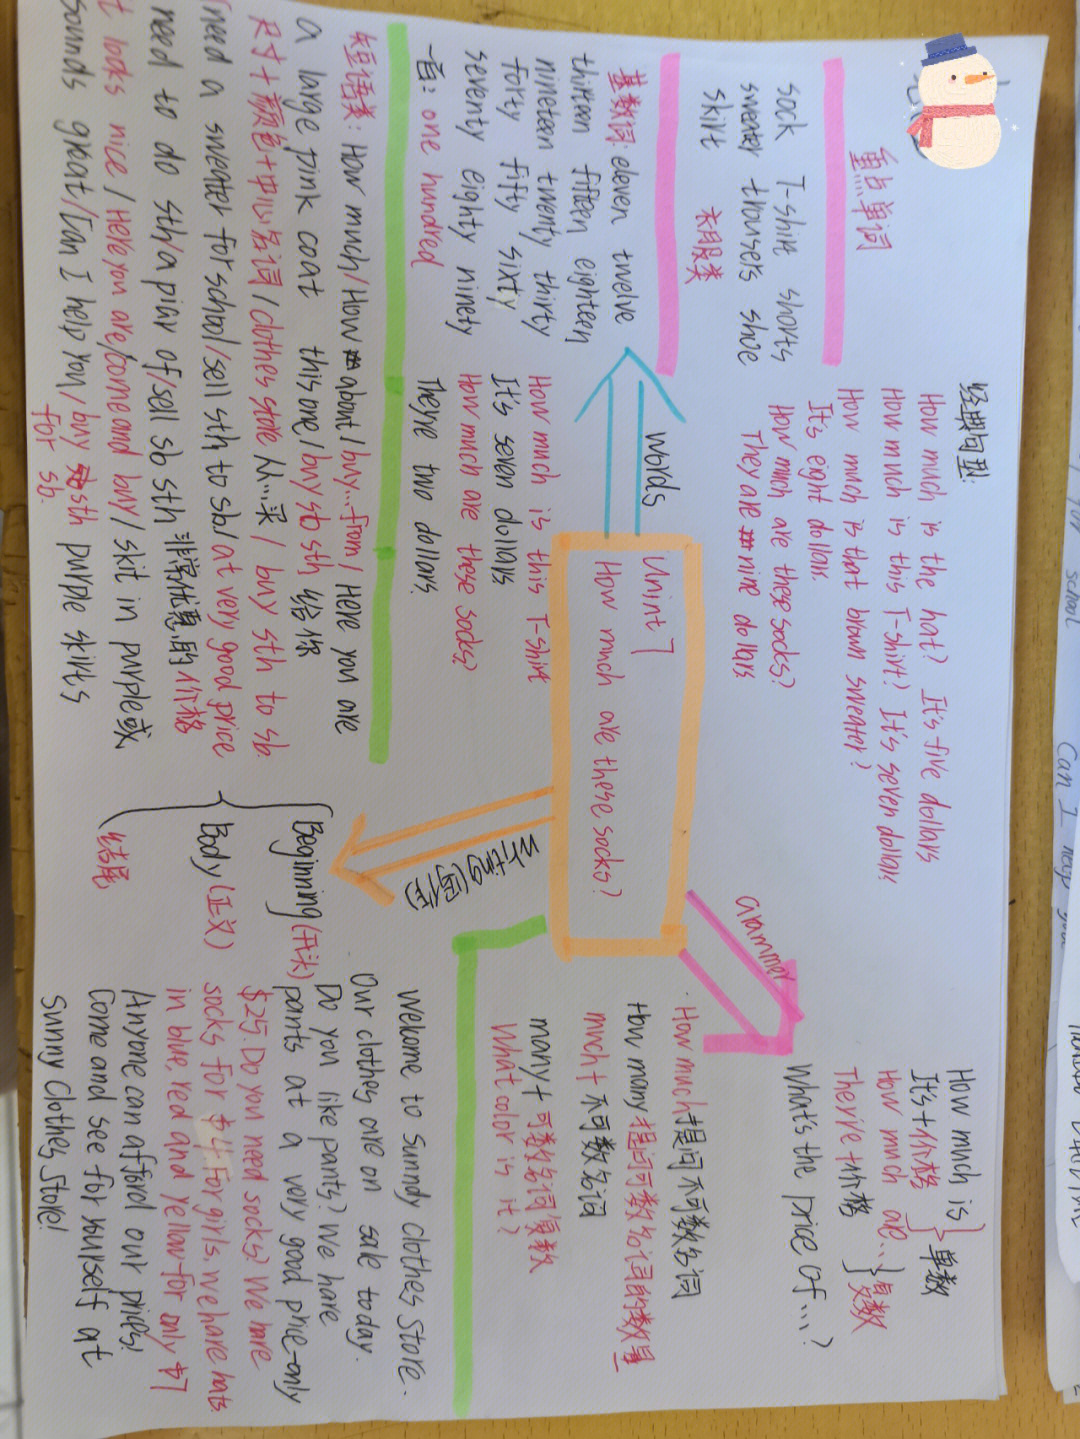 重点单词
sock T-shirt shorts
sweater trousers shoe
skirt 衣服类
基数词: eleven twelve
thirteen fifteen eighteen
nineteen twenty thirty
forty fifty sixty
seventy eighty ninety
一百: one hundred
经典句型:
How much is the hat? It's five dollars
How much is this T-shirt? It's seven dollars
How much is that brown sweater?
It's eight dollars.
How much are these socks?
They are nine dollars
words
How much is this T-shirt
It's seven dollars
How much are these socks?
They're two dollars.
Unint 7
How much are these socks?
Grammer
How much is
It's+价格 } 单数
How much are...
There're+价格 } 复数
What's the price of...?
·How much提问不可数名词
How many提问可数名词的数量
much+不可数名词
many+可数名词复数
What color is it?
短语类: How much/How about/buy...from/Here you are
a large pink coat this one/buy sb sth 给你
尺寸+颜色+中心名词/clothes store 从...买/ buy sth to sb.
need a sweater for school/sell sth to sb/at very good price
need to do sth/a pair of/sell sb sth 非常优惠的价格
t looks nice/Here you are/come and buy/skit in purple或
sounds great/Can I help you/buy sth purple skirts
for sb.
writing(写作)
Beginning(开头)
Body(正文)
结尾
Welcome to sunny clothes Store.
Our clothes are on sale today.
Do you like pants? We have
pants at a very good price-only
$25. Do you need socks? We have
socks for $4. For girls, we have hats
in blue, red and yellow for only $7
Anyone can afford our prices!
Come and see for yourself at
Sunny Clothes Store!
school
Can I help you